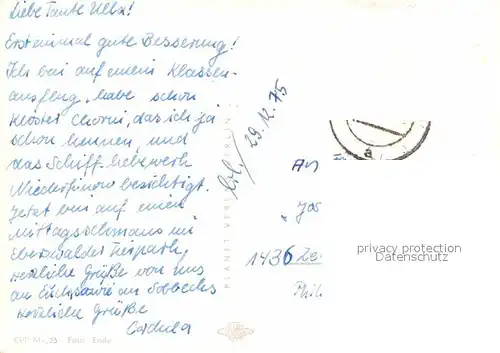 Liebe Tante Ulla!
Erst einmal gute Besserung!
Ich bin auf einem Klassen-
ausflug, habe schon
Kloster Chorin, das ich ja
schon kennen, und
das Schiffshebewerk
Niederfinow besichtigt.
Jetzt bin auf einen
Mittagsschmaus im
Eberswalder Tierpark,
herzliche Grüße von uns
an
herzliche Grüße
Cordula
EVP M -,25 Foto: Ende
PLANET VERLAG BERLIN
erl. 29.12.75
An
1436 Ze
Phil
privacy protection
Datenschutz